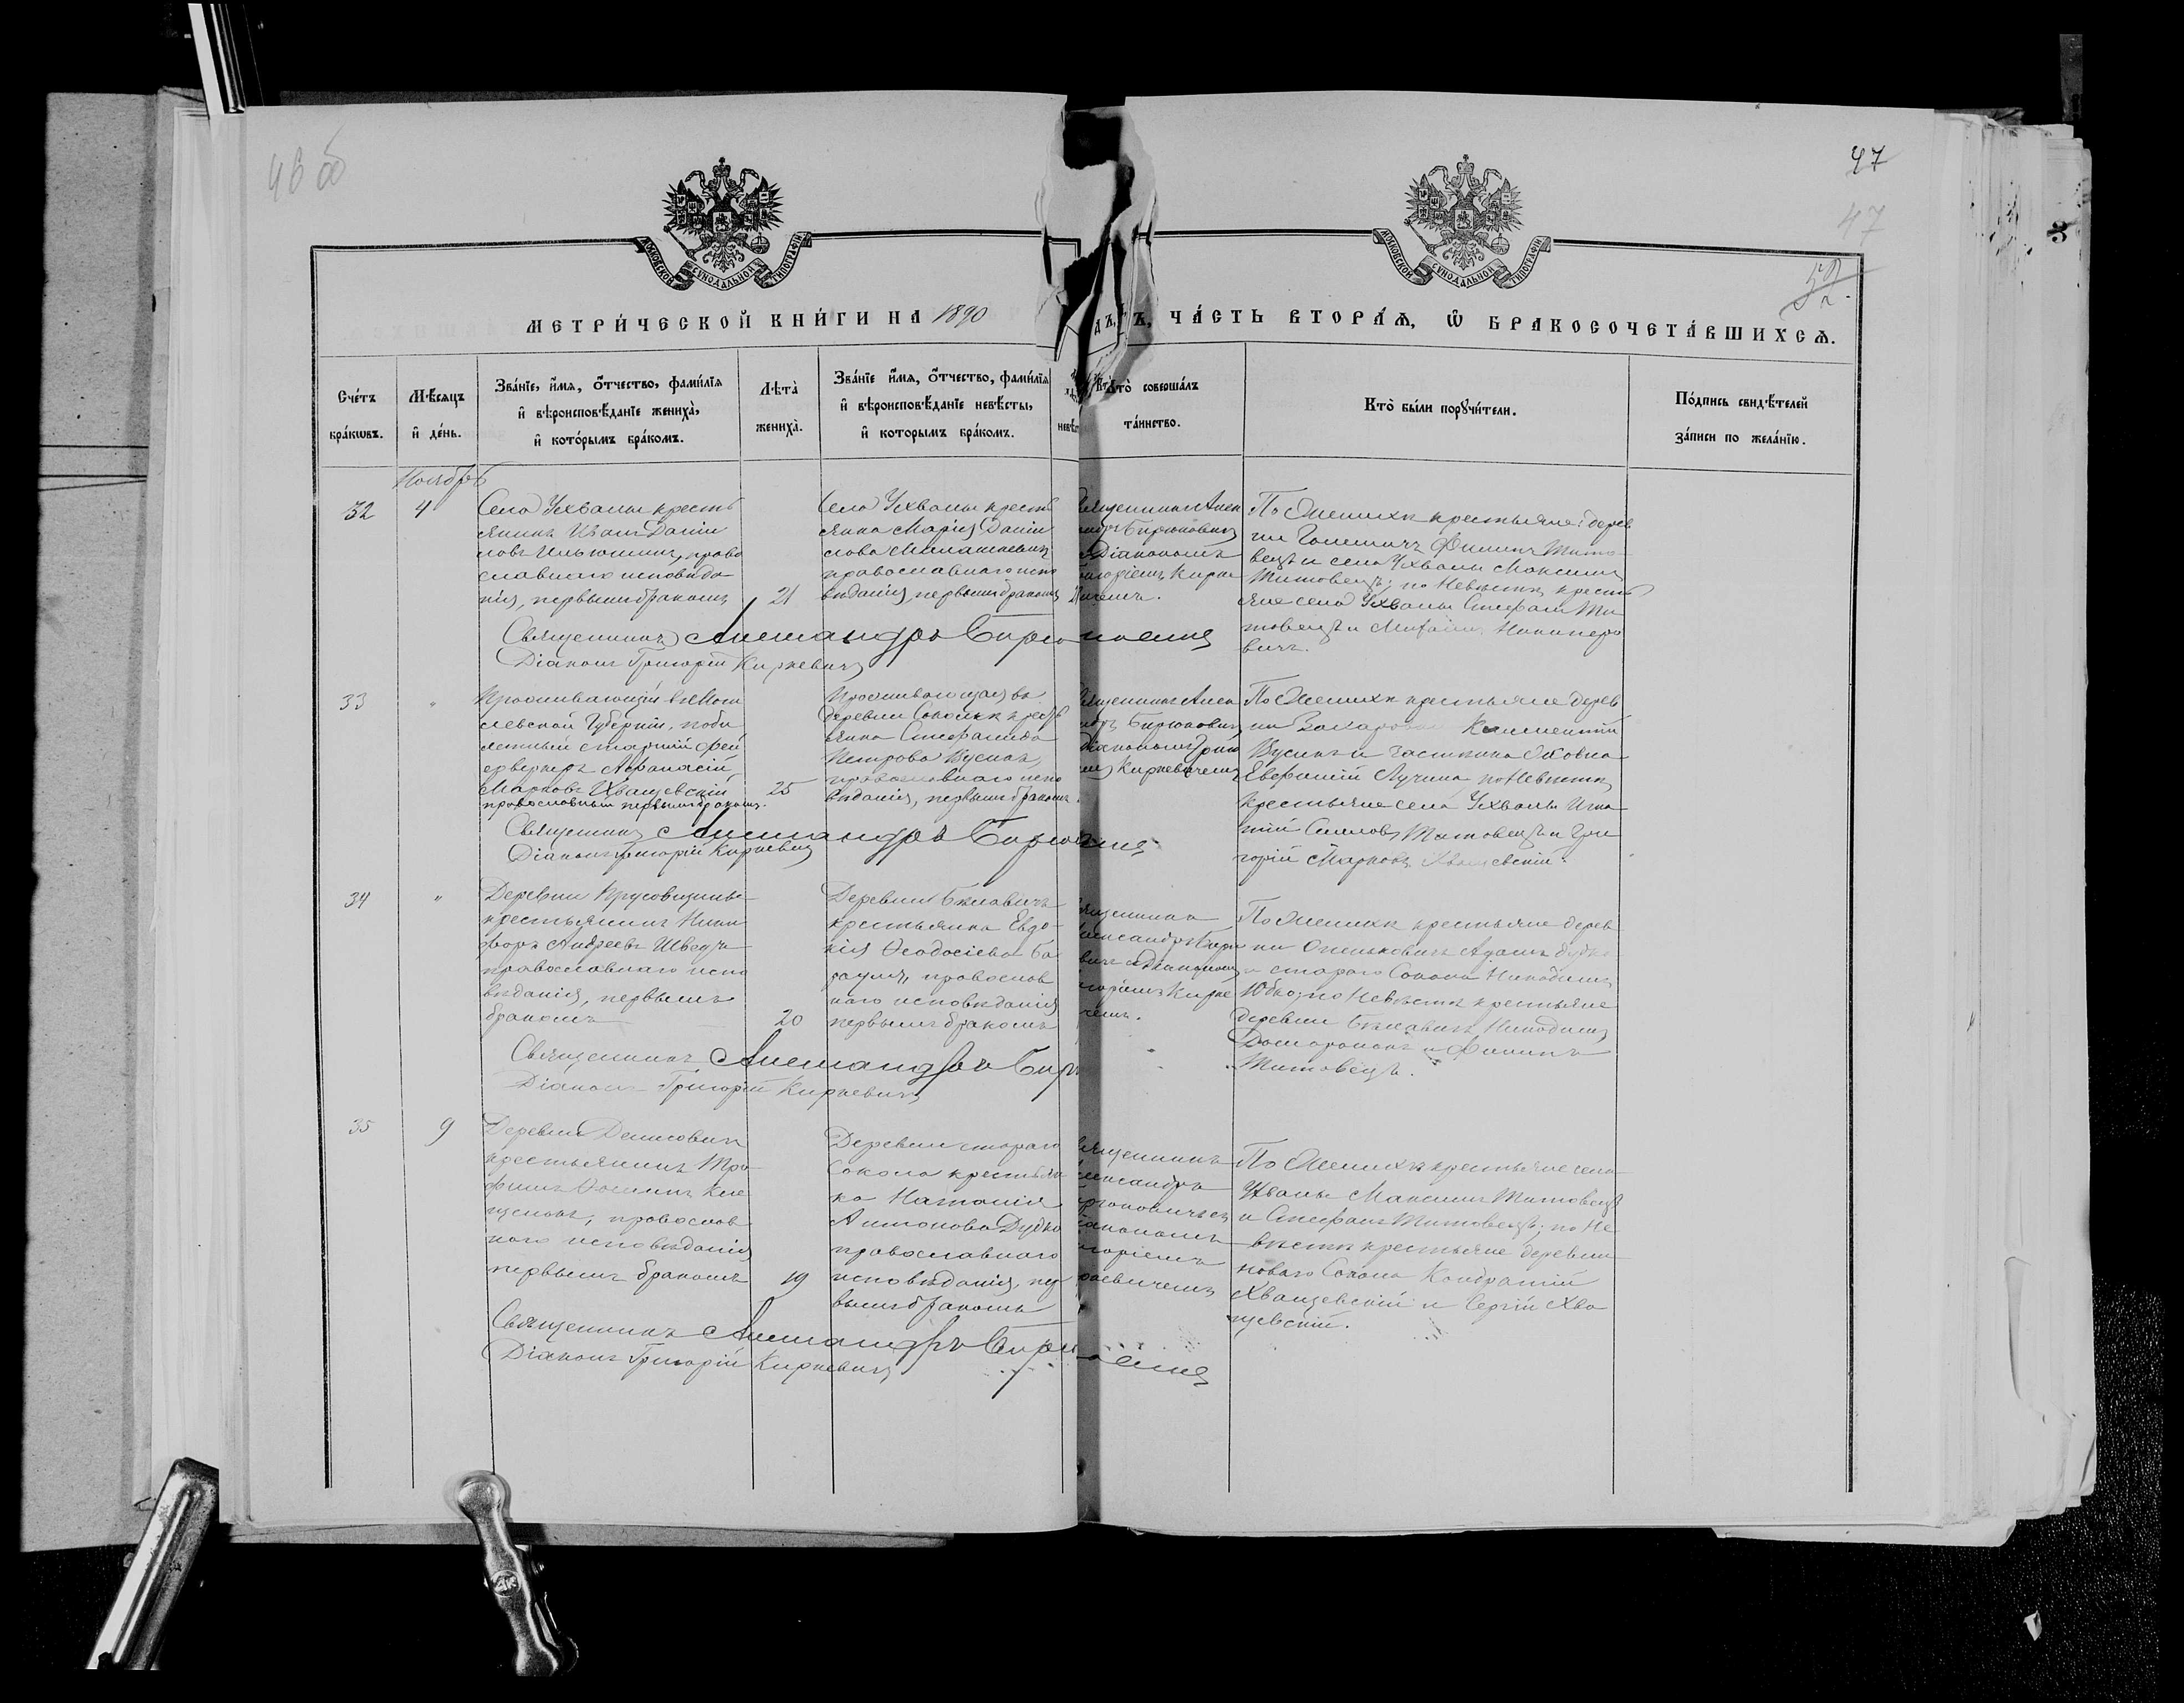 46 об
47
47
МОСКОВСКОЙ СѴНОДАЛЬНОЙ ТИПОГРАФІИ
МОСКОВСКОЙ СѴНОДАЛЬНОЙ ТИПОГРАФІИ
МЕТРИ́ЧЕСКОЙ КНИ́ГИ НА 1890
ДЪ, ЧА́СТЬ ВТОРА́Ѧ, Ѽ БРАКОСОЧЕТА́ВШИХСѦ.
Сче́тъ бра́кѡвъ.
Мѣ́сяцъ и҆ де́нь.
Зва́нїе, и҆́мя, ѻ҆́тчество, фами́лїя и҆ вѣроисповѣ́данїе жениха̀, и҆ кото́рымъ бра́комъ.
Лѣта̀ жениха̀.
Зва́нїе и҆́мя, ѻ҆́тчество, фами́лїя и҆ вѣроисповѣ́данїе невѣ́сты, и҆ которымъ бра́комъ.
Кто̀ соверша́лъ та́инство.
Кто̀ бы́ли порꙋчи́тели.
По́дпись свидѣ́телей за́писи по жела́нїю.
Ноябрь
32
4
Села Ухвалы кресть
янинъ Иванъ Даніи
ловъ Ильюшинъ, право
славнаго исповѣда
нія, первымъ бракомъ
21
Села Ухвалы кресть
янка Марія Даніи
лова
православнаго испо
вѣданія, первымъ бракомъ
Бирюковичъ
Діакономъ
По Женихѣ крестьяне: дерев
ни Филиппъ Тито-
вецъ и села Ухвалы Максимъ
Титовецъ; по Невѣстѣ кресть
яне села Ухвалы Стефанъ Ти
товецъ и Никипоро
вичъ.
Священникъ Александръ Бирюковичъ
Діаконъ Григорій Киркевичъ
33
"
Проживающій въ Моги
левской Губерніи,
старшій фей
ерверкеръ Аѳанасій
Марковъ Хващевскій
православный первымъ бракомъ.
25
Проживающая въ
деревни Соколкѣ кресть
янка Стефанида
Петрова Вусикъ,
православнаго испо
вѣданія, первымъ бракомъ.
Бирюковичъ
Киркевичемъ
По Женихѣ крестьяне дерев
ни Захаровки Климентій
Вусикъ и
Евфимій Лучина, по Невѣстѣ
крестьяне села Ухвалы Игна
тій Титовецъ и Гри
горій Марковъ Хващевскій.
Священникъ Александръ Бирюковичъ
Діаконъ Григорій Киркевичъ
34
"
Деревни
крестьянинъ Ники
форъ Андреевъ Шведъ
православнаго испо
вѣданія, первымъ
бракомъ
20
Деревни Бѣлавичъ
крестьянка Евдо-
кія Ѳеодосіева
православ
наго исповѣданія
первымъ бракомъ
По Женихѣ крестьяне дерев
ни Адамъ Дудко
и стараго Сокола Никодимъ
Юдко; по Невѣстѣ крестьяне
деревни Бѣлавичъ Никодимъ
и Филиппъ
Титовецъ.
Священникъ Александръ
Діаконъ Григорій Киркевичъ
35
9
Деревни Денисовичъ
крестьянинъ Тро-
фимъ
православ
наго исповѣданія
первымъ бракомъ
19
Деревни стараго
Сокола крестьян
ка Наталія
Антонова Дудко
православнаго
исповѣданія, пер
вымъ бракомъ
По Женихѣ крестьяне села
Ухвалы Максимъ Титовецъ
и Стефанъ Титовецъ; по Не
вѣстѣ крестьяне деревни
новаго Сокола Кондратій
Хващевскій и Сергій Хва
щевскій.
Священникъ Александръ Бирюковичъ
Діаконъ Григорій Киркевичъ